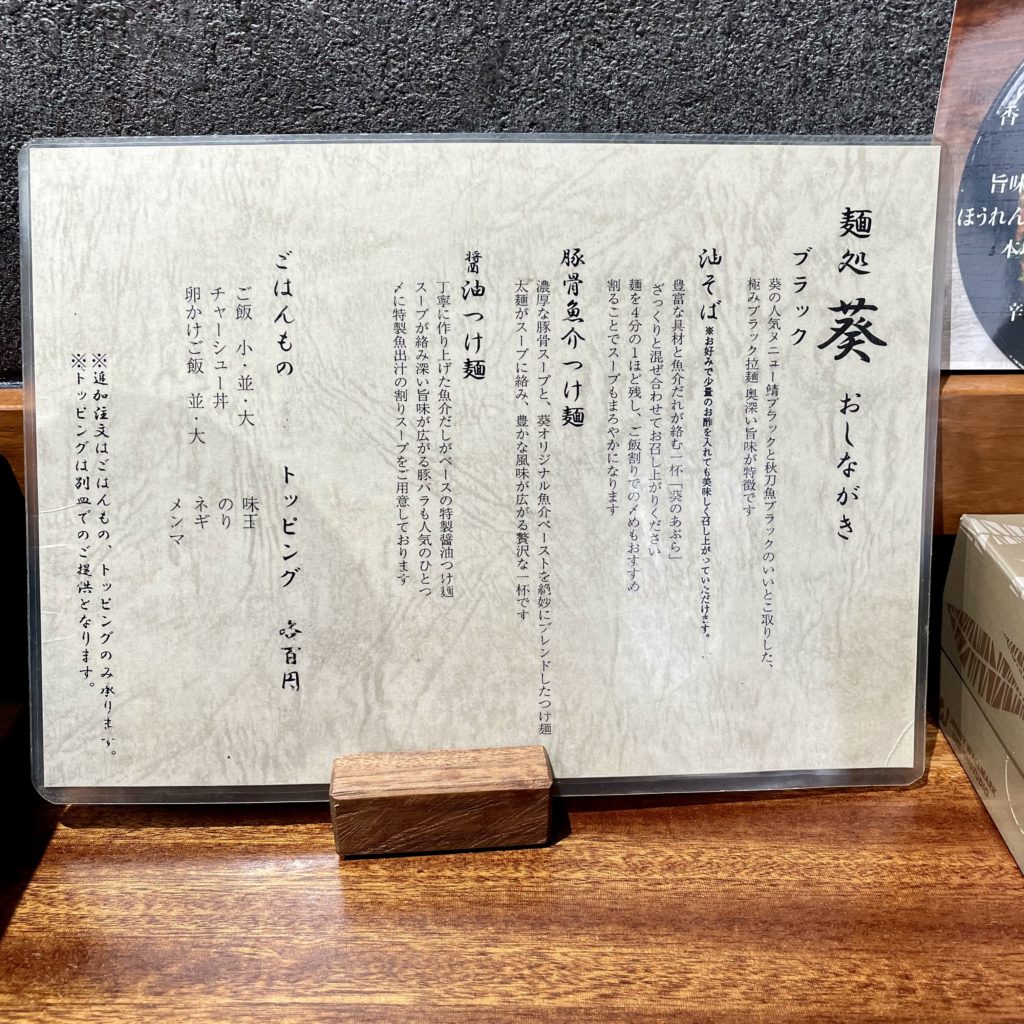 麺処 葵 おしながき
ブラック
葵の人気メニュー鯖ブラックと秋刀魚ブラックのいいとこ取りした、
極みブラック拉麺 奥深い旨味が特徴です
油そば ※お好みで少量のお酢を入れても美味しく召し上がっていただけます。
豊富な具材と魚介だれが絡む一杯「葵のあぶら」
ざっくりと混ぜ合わせてお召し上がりください
麺を4分の1ほど残し、ご飯割りでの〆めもおすすめ
割ることでスープもまろやかになります
豚骨魚介つけ麺
濃厚な豚骨スープと、葵オリジナル魚介ペーストを絶妙にブレンドしたつけ麺
太麺がスープに絡み、豊かな風味が広がる贅沢な一杯です
醤油つけ麺
丁寧に作り上げた魚介だしがベースの特製醤油つけ麺
スープが絡み深い旨味が広がる豚バラも人気のひとつ
〆に特製魚出汁の割りスープをご用意しております
ごはんもの
ご飯 小・並・大
チャーシュー丼
卵かけご飯 並・大
トッピング 各百円
味玉
のり
ネギ
メンマ
※追加注文はごはんもの、トッピングのみ承ります。
※トッピングは別皿でのご提供となります。
香
旨味
ほうれん